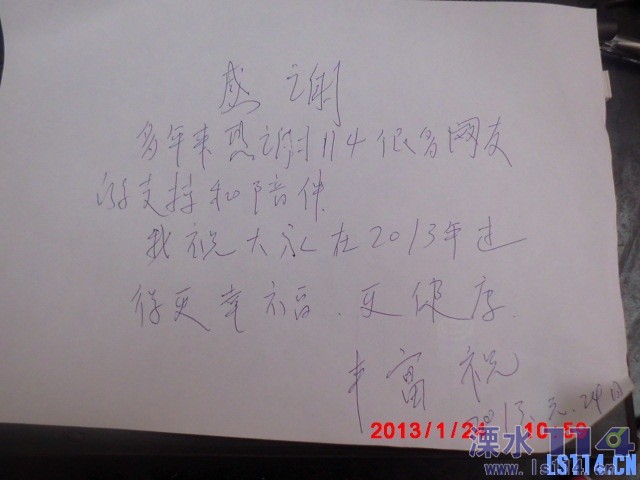 感谢
多年来感谢114很多网友
的支持和陪伴
我祝大家在2013年过
得更幸福、更健康.
丰富 祝
2013.元.24日
2013/1/24 10:59
溧水114
www.ls114.cn
LS114.CN